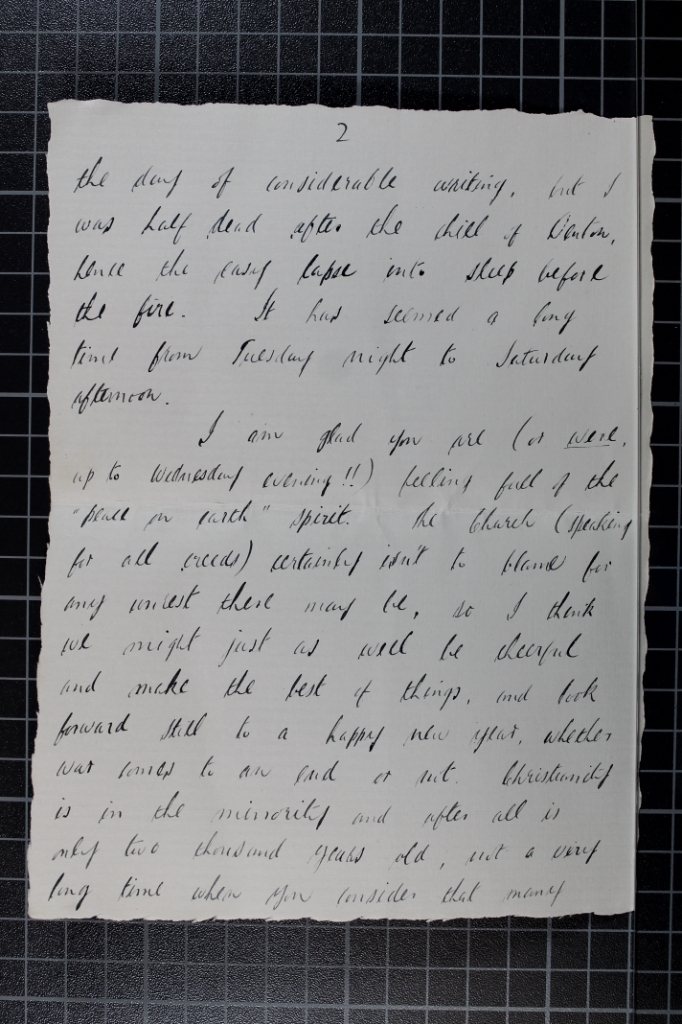 2
the day of considerable writing, but I
was half dead after the chill of Denton,
hence the easy lapse into sleep before
the fire. It has seemed a long
time from Tuesday night to Saturday
afternoon.
I am glad you are (or were,
up to Wednesday evening!!) feeling full of the
"peace on earth" spirit. The Church (speaking
for all creeds) certainly isn't to blame for
any unrest there may be, so I think
we might just as well be cheerful
and make the best of things, and look
forward still to a happy new year, whether
war comes to an end or not. Christianity
is in the minority and after all is
only two thousand years old, not a very
long time when you consider that many